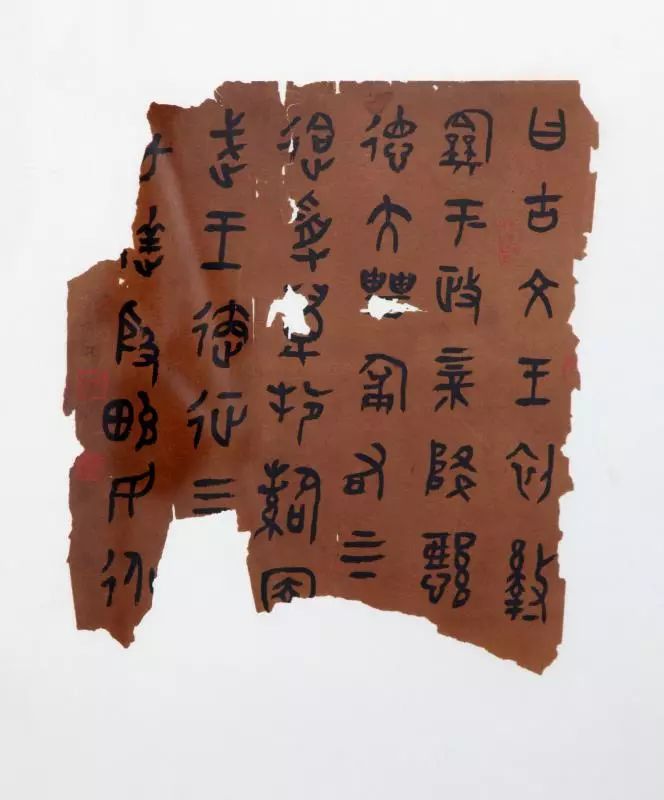 曰古文王初盭
龢于政上帝降懿
德大甹匍有上下
迨受萬邦䚄圉
武王遹征四
達殷畯民永